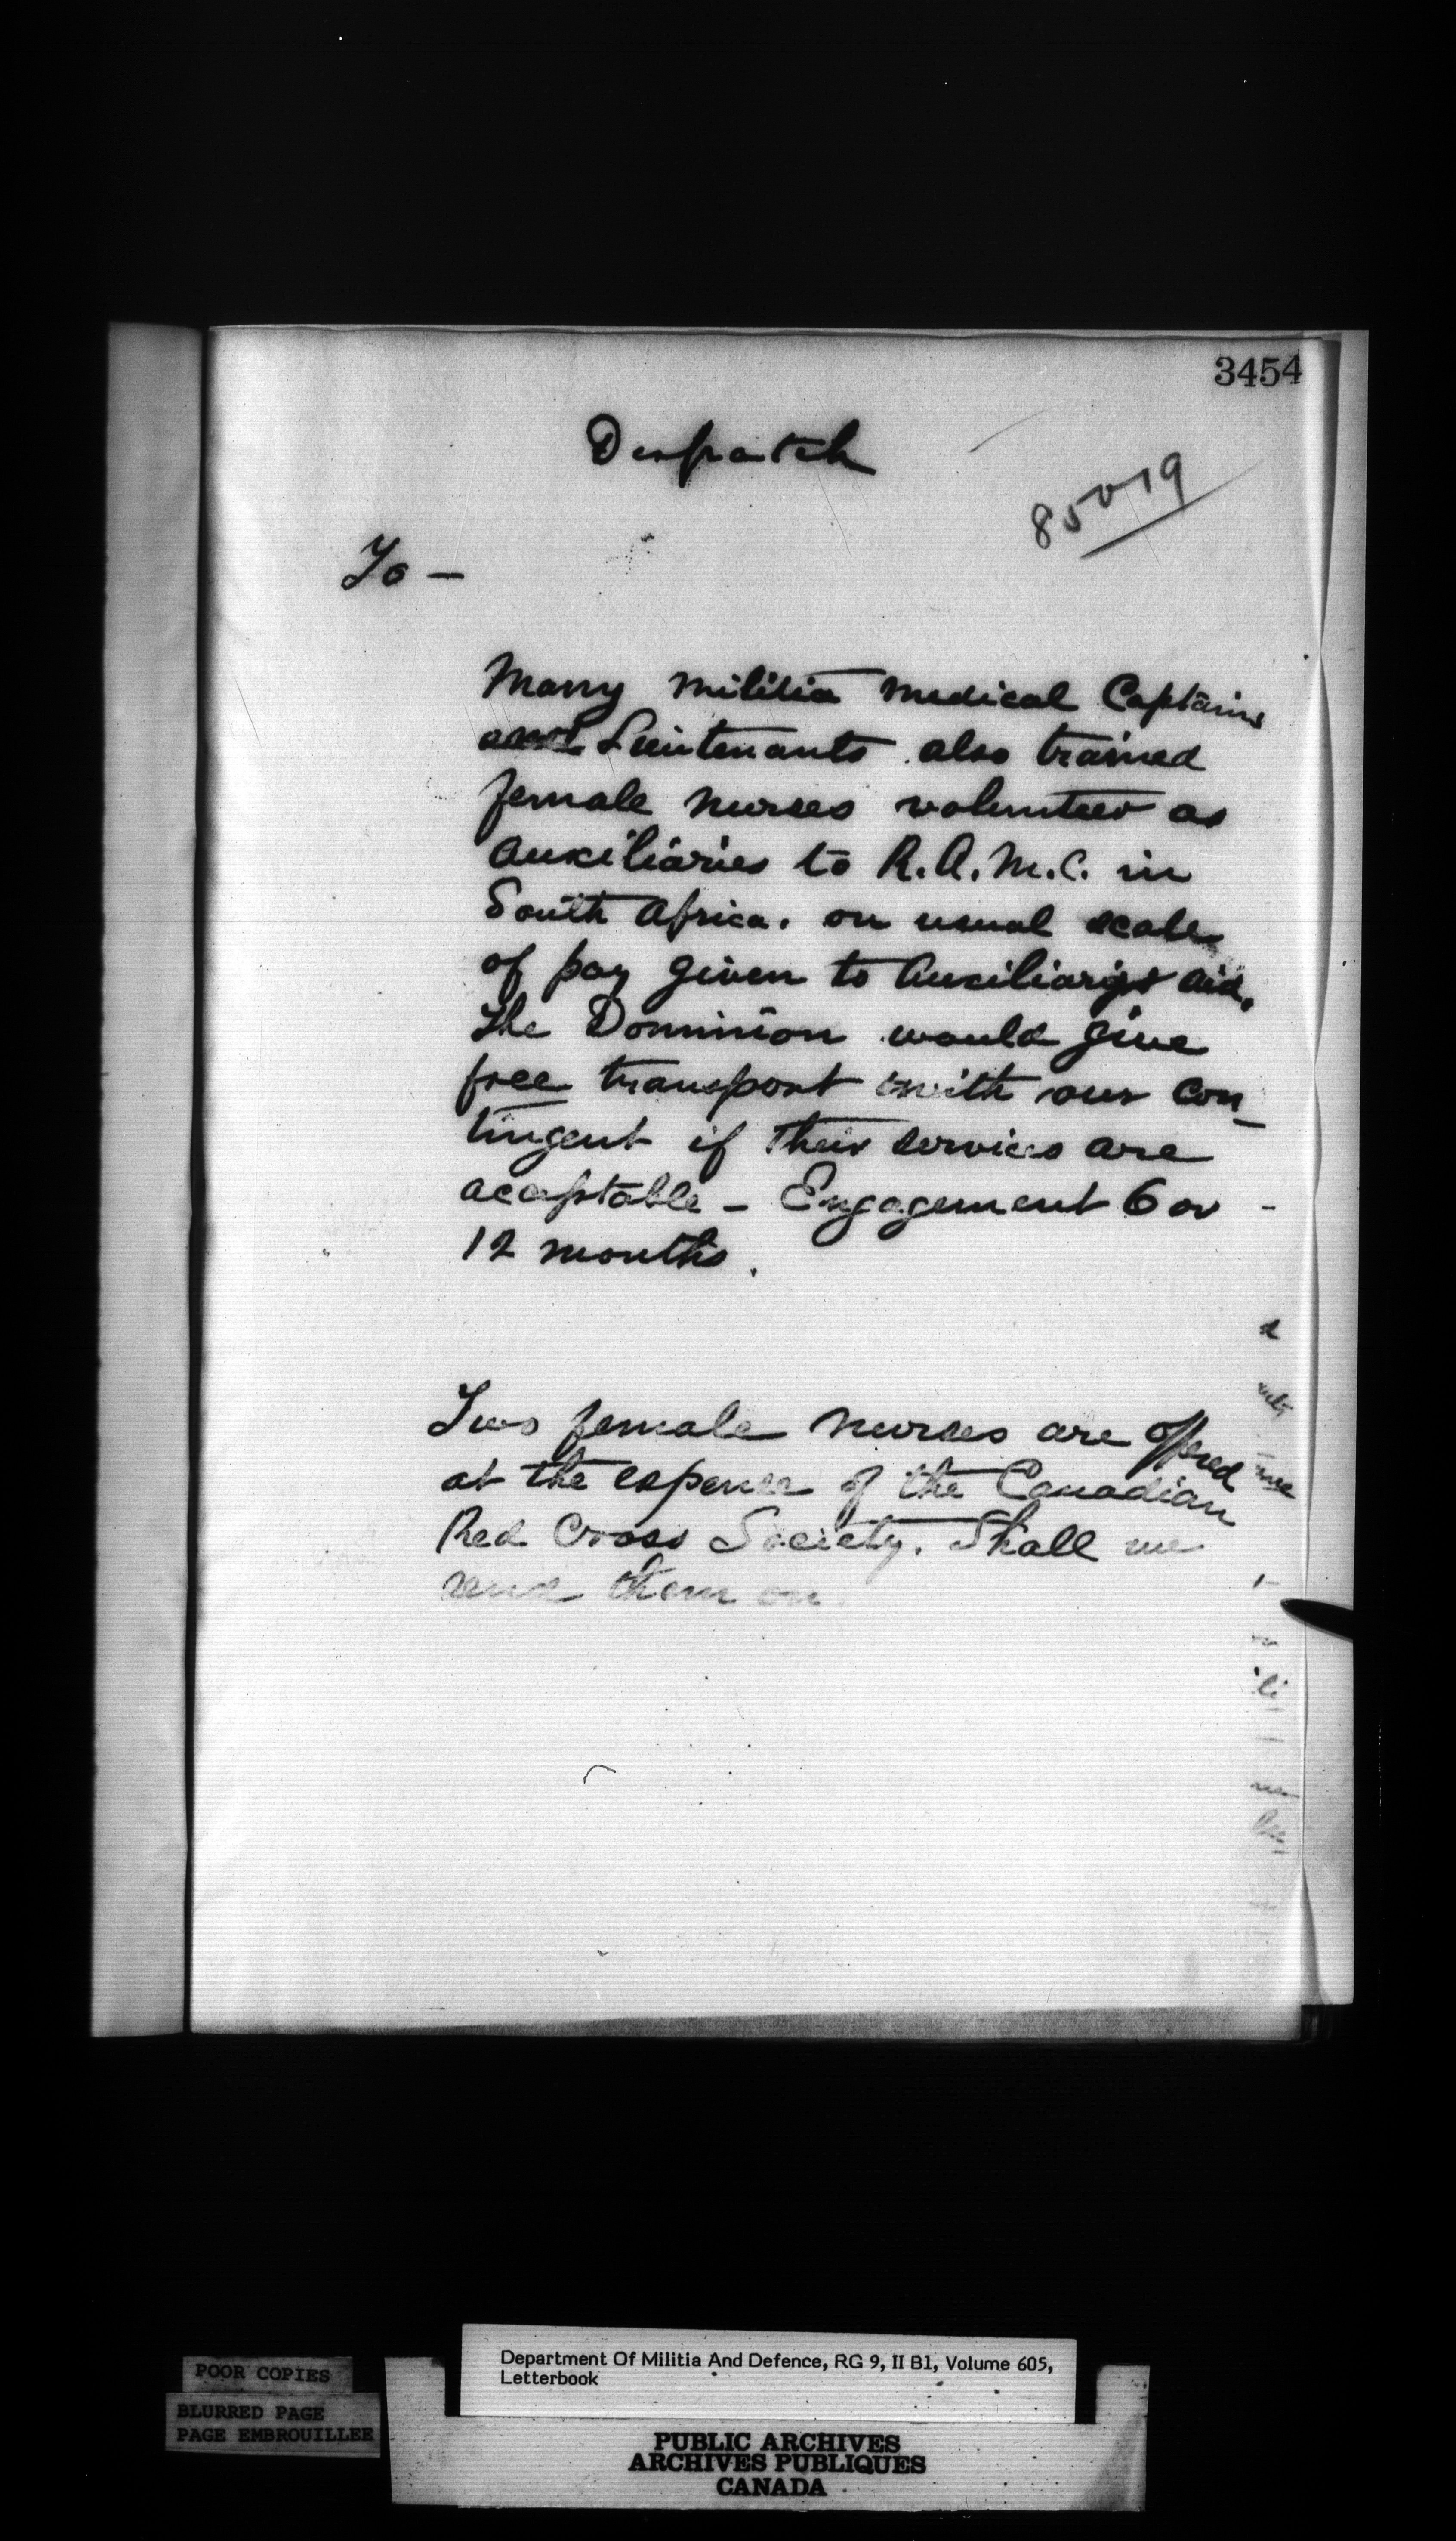 3454
Despatch
85019
To —
Many militia medical Captains
and Lieutenants also trained
female nurses volunteer as
auxiliaries to R.A.M.C. in
South Africa. on usual scale
of pay given to auxiliary aid.
The Dominion would give
free transport with our con_
tingent if their services are
acceptable — Engagement 6 or
12 months.
Two female nurses are offered
at the expense of the Canadian
Red Cross Society. Shall we
send them on.
Department Of Militia And Defence, RG 9, II B1, Volume 605,
Letterbook
POOR COPIES
BLURRED PAGE
PAGE EMBROUILLEE
PUBLIC ARCHIVES
ARCHIVES PUBLIQUES
CANADA